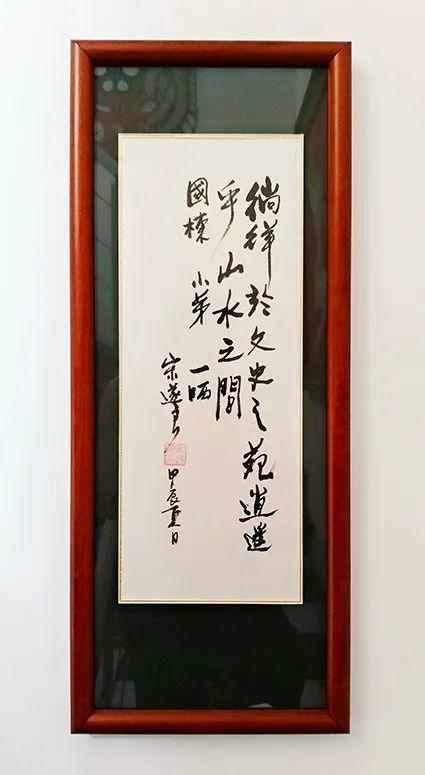 徜徉於文史之苑逍遙
乎山水之間
國棟 小弟 一哂
宋遂良
甲辰夏日